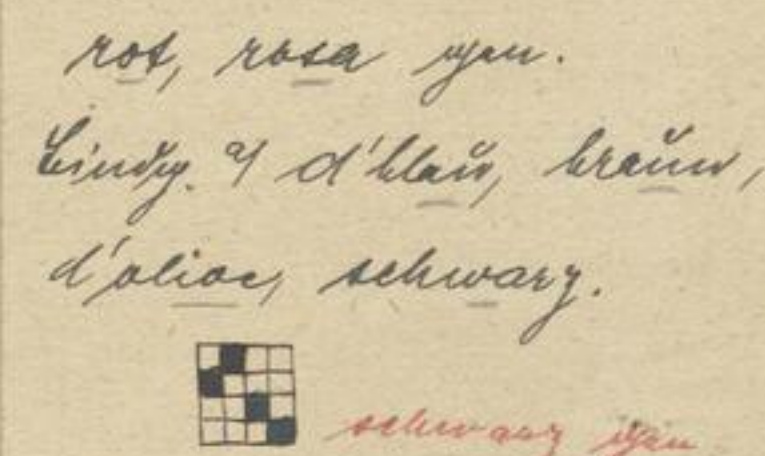 rot, rosa gen.
Bindg. a/ d'blau, braun,
d'olive, schwarz.
schwarz